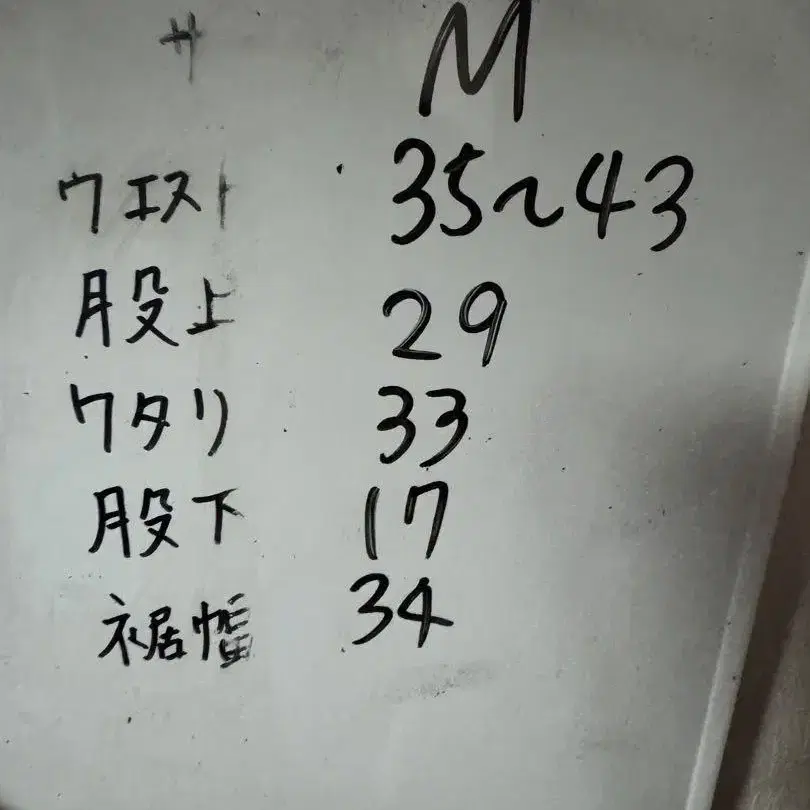 サ M
ウエスト 35~43
股上 29
ワタリ 33
股下 17
裾幅 34